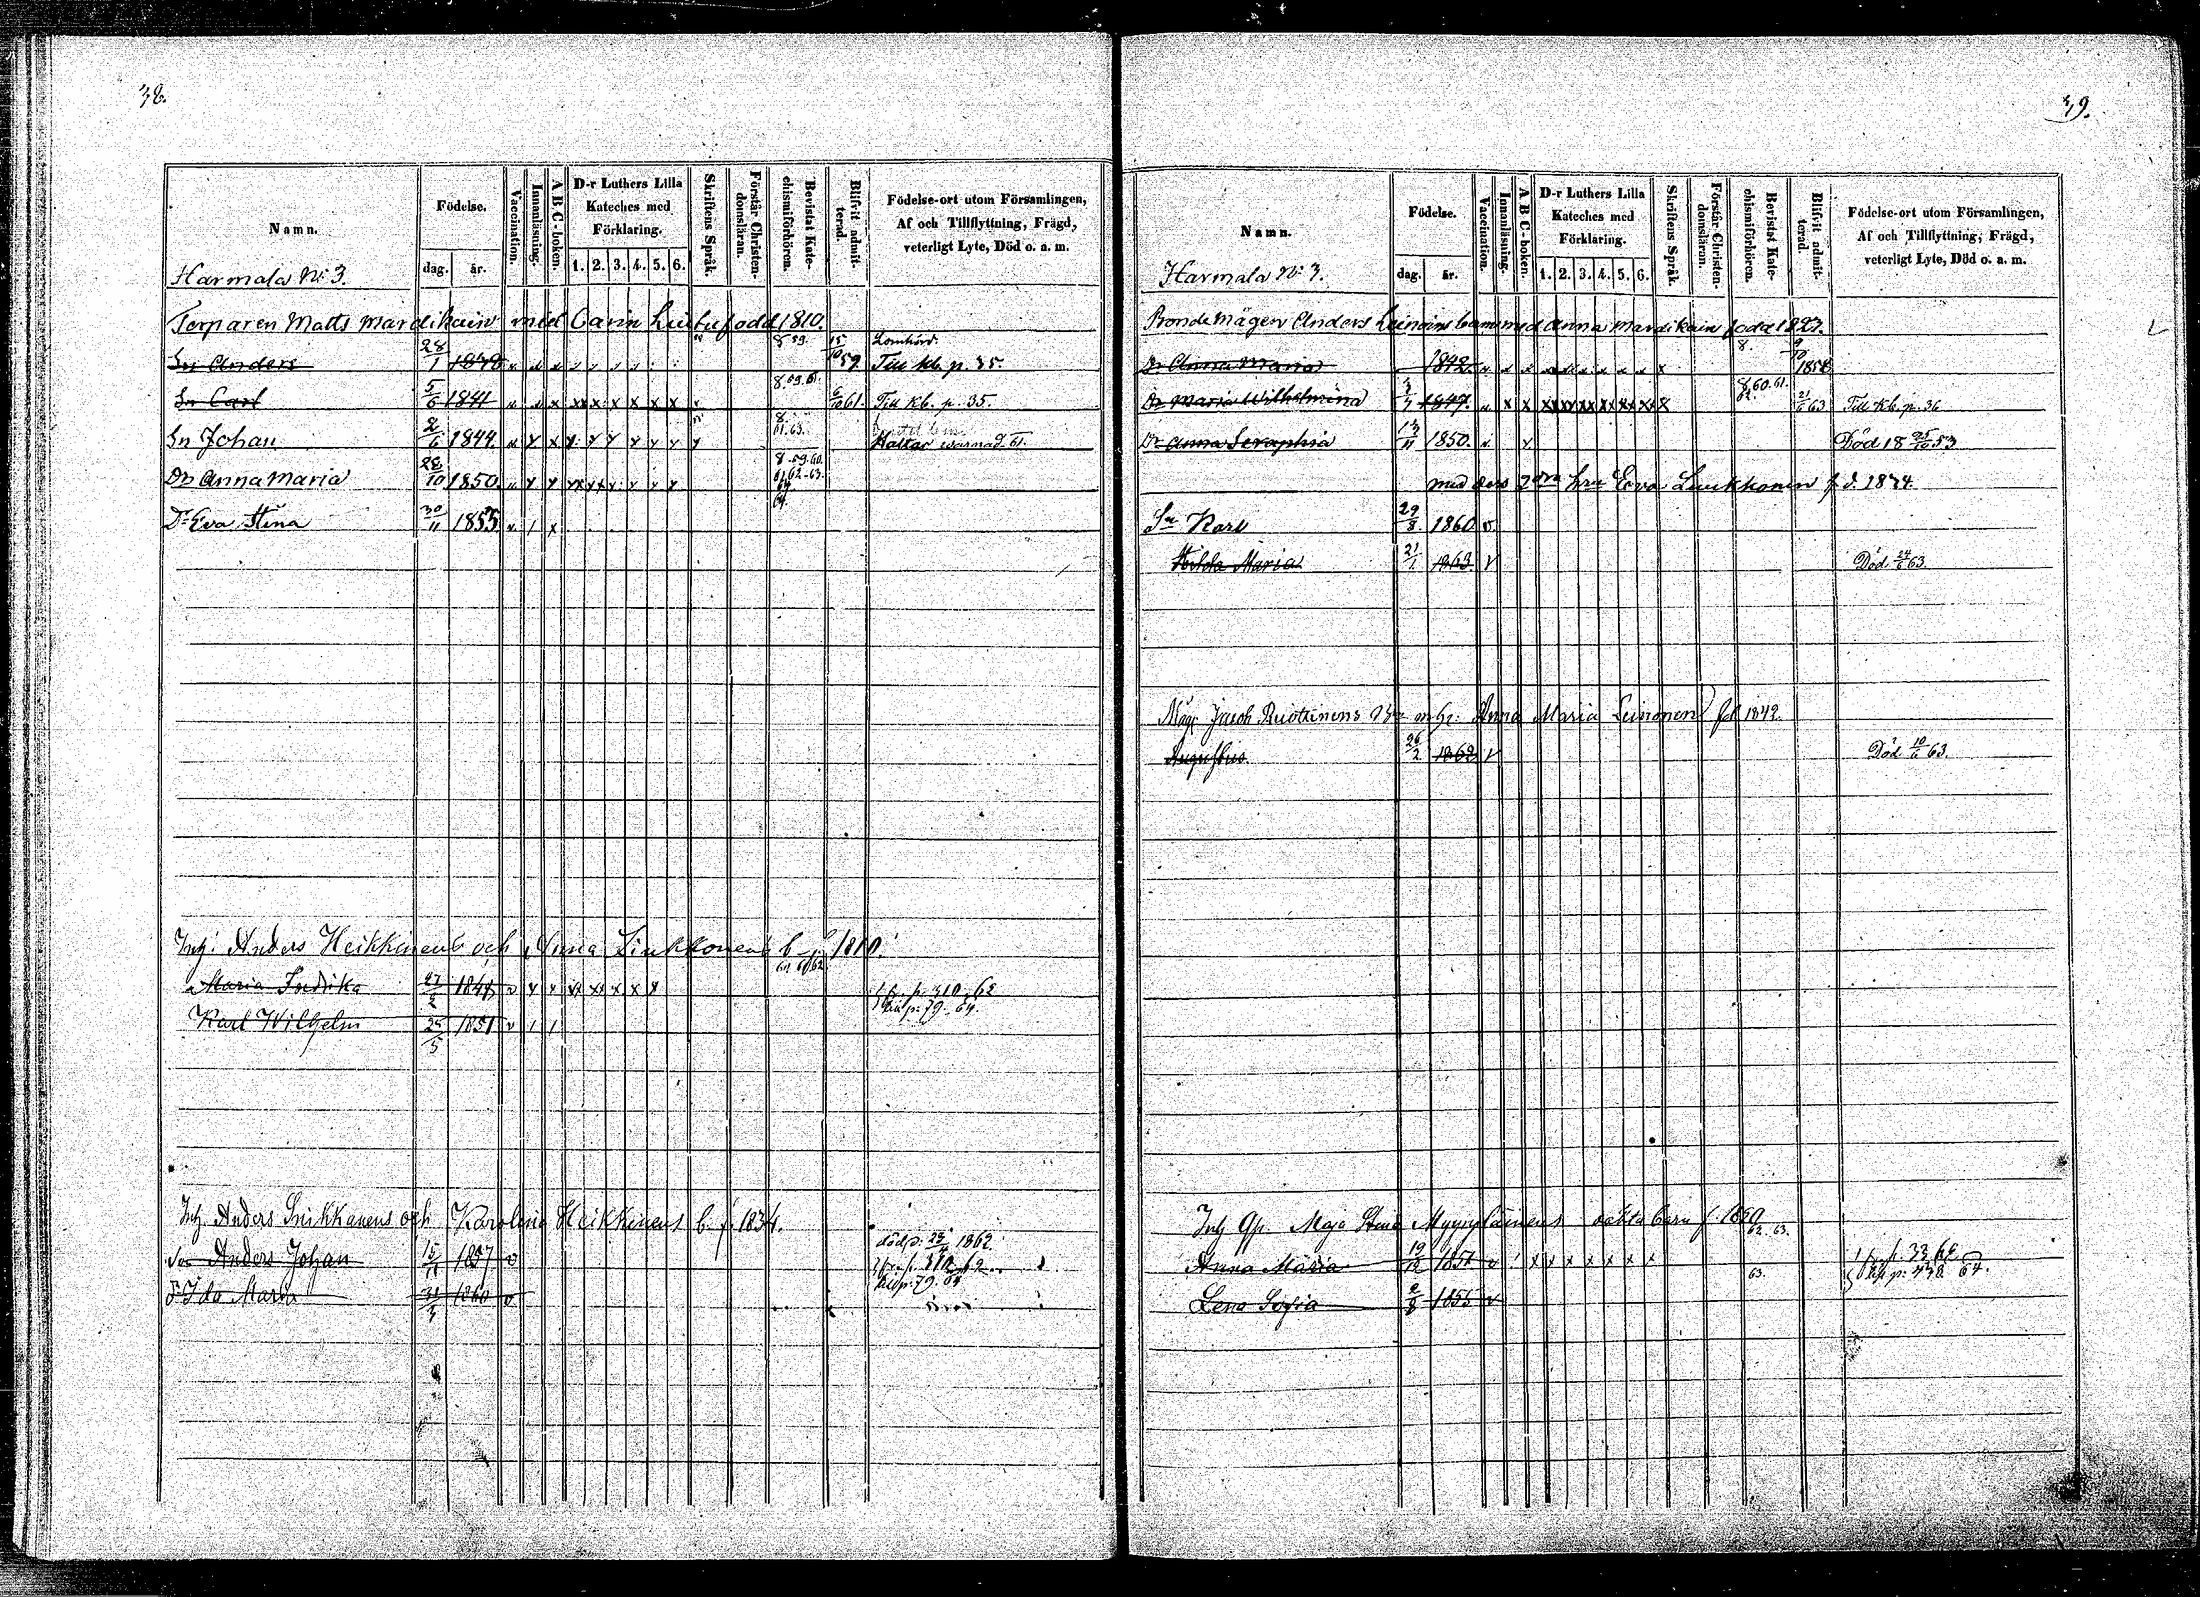 38.
Namn.
Födelse.
dag.
år.
Vaccination.
Innanläsning.
A B C-boken.
D-r Luthers Lilla Kateches med Förklaring.
1. 2. 3. 4. 5. 6.
Skriftens Språk.
Förstår Christendomsläran.
Bevistat Katechismiförhören.
Blifvit admitterad.
Födelse-ort utom Församlingen,
Af och Tillflyttning, Frägd,
veterligt Lyte, Död o. a. m.
Harmala No 3.
Torparen Matts Mardikain med Carin född 1810.
Sn Anders 28/1 1840 8 59. 15/10 59. Till kb. p. 35.
Sn Carl 5/6 1841 8 59. 61. 61. Till kb. p. 35.
Sn Johan 2/6 1844. 8. 61. 63. Haltar
Dr Anna Maria 28/10 1850. 8 59. 60. 61 62-63. 64.
Dr Eva Stina 30/11 1855. 64.
Inh. Anders Heikkinens och Anna b. f. 1810.
Maria Fredrika 27/2 1848 p. 310. 62
Karl Wilhelm 25/5 1851 p. 79. 64.
Inh. Anders och Karolina Heikkinens b. f. 1834.
Son Anders Johan 15/11 1857 död 1862.
D. Ida Maria 1860 p. 79. 64
39.
Namn.
Födelse.
dag.
år.
Vaccination.
Innanläsning.
A B C-boken.
D-r Luthers Lilla Kateches med Förklaring.
1. 2. 3. 4. 5. 6.
Skriftens Språk.
Förstår Christendomsläran.
Bevistat Katechismiförhören.
Blifvit admitterad.
Födelse-ort utom Församlingen,
Af och Tillflyttning, Frägd,
veterligt Lyte, Död o. a. m.
Harmala No 3.
Bonde Mågen Anders Leinoins barn med Anna Mardikain född 1823.
Dr Anna Maria 1842. 8. 9/10 1858
Dr Maria Wilhelmina 3/7 1847. 8 60. 61. 62. 21/6 63 Till kb. p. 36
Dr Anna Seraphia 13/11 1850. Död 18 25/10 53
med dess 2dra hru Eva f. d. 1834.
Sn Karl 29/8 1860
Hilda Maria 21/1 1863. Död 24/6 63.
Måg. Jacob Ruottinens Bn m hr: Anna Maria Leinonen fd 1842.
Augustus 26/2 1862 Död 10/6 63.
Inh Maja Stina oäkta barn f.
62. 63.
Anna Maria 19/12 1851
63.
Lena Sofia 2/8 1855